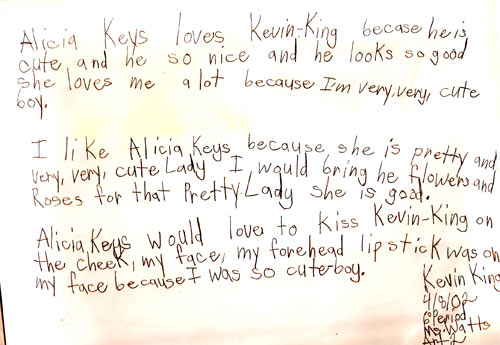 Alicia Keys loves Kevin-King becase he is
cute and he so nice and he looks so good
she loves me a lot because I'm very, very, cute
boy.
I like Alicia Keys because she is pretty and
very, very, cute Lady I would bring he flowers and
Roses for that Pretty Lady she is good.
Alicia Keys would love to kiss Kevin-King on
the cheek, my face, my forehead lip stick was on
my face because I was so cute boy.
Kevin King
4/8/02
6 Period
Ms. Watts
Art 2